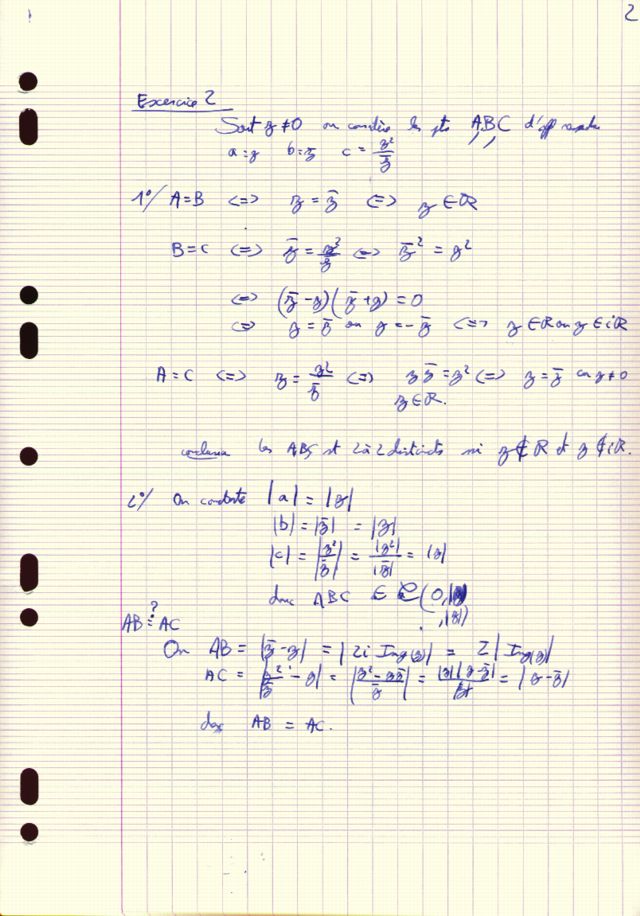 2
Exercice 2
Soit z ≠ 0 on considère les pts A, B, C d'aff
a = z b = z̄ c = z²/z̄
1°/ A = B <=> z = z̄ <=> z ∈ ℝ
B = C <=> z̄ = z²/z̄ <=> z̄² = z²
<=> (z̄ - z)(z̄ + z) = 0
<=> z = z̄ ou z = - z̄ <=> z ∈ ℝ ou z ∈ iℝ
A = C <=> z = z²/z̄ <=> z z̄ = z² <=> z = z̄ car z ≠ 0
z ∈ ℝ.
conclusion les ABC st 2 à 2 distincts si z ∉ ℝ et z ∉ iℝ.
2°/ On constate |a| = |z|
|b| = |z̄| = |z|
|c| = |z²/z̄| = |z²|/|z̄| = |z|
donc ABC ∈ C(0,
, |z|)
AB =? AC
On AB = |z̄ - z| = |2i Im(z)| = 2|Im(z)|
AC = |z²/z̄ - z| = |(z² - z z̄)/z̄| = |z||z - z̄|/|z̄| = |z - z̄|
donc AB = AC.